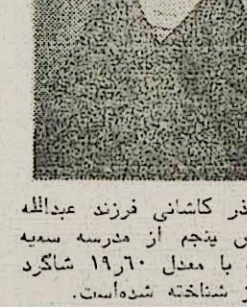 کاشانی فرزند عبدالله
پنجم از مدرسه سمیه
با معدل ۱۹٫۶۰ شاگرد
شناخته شده‌است.